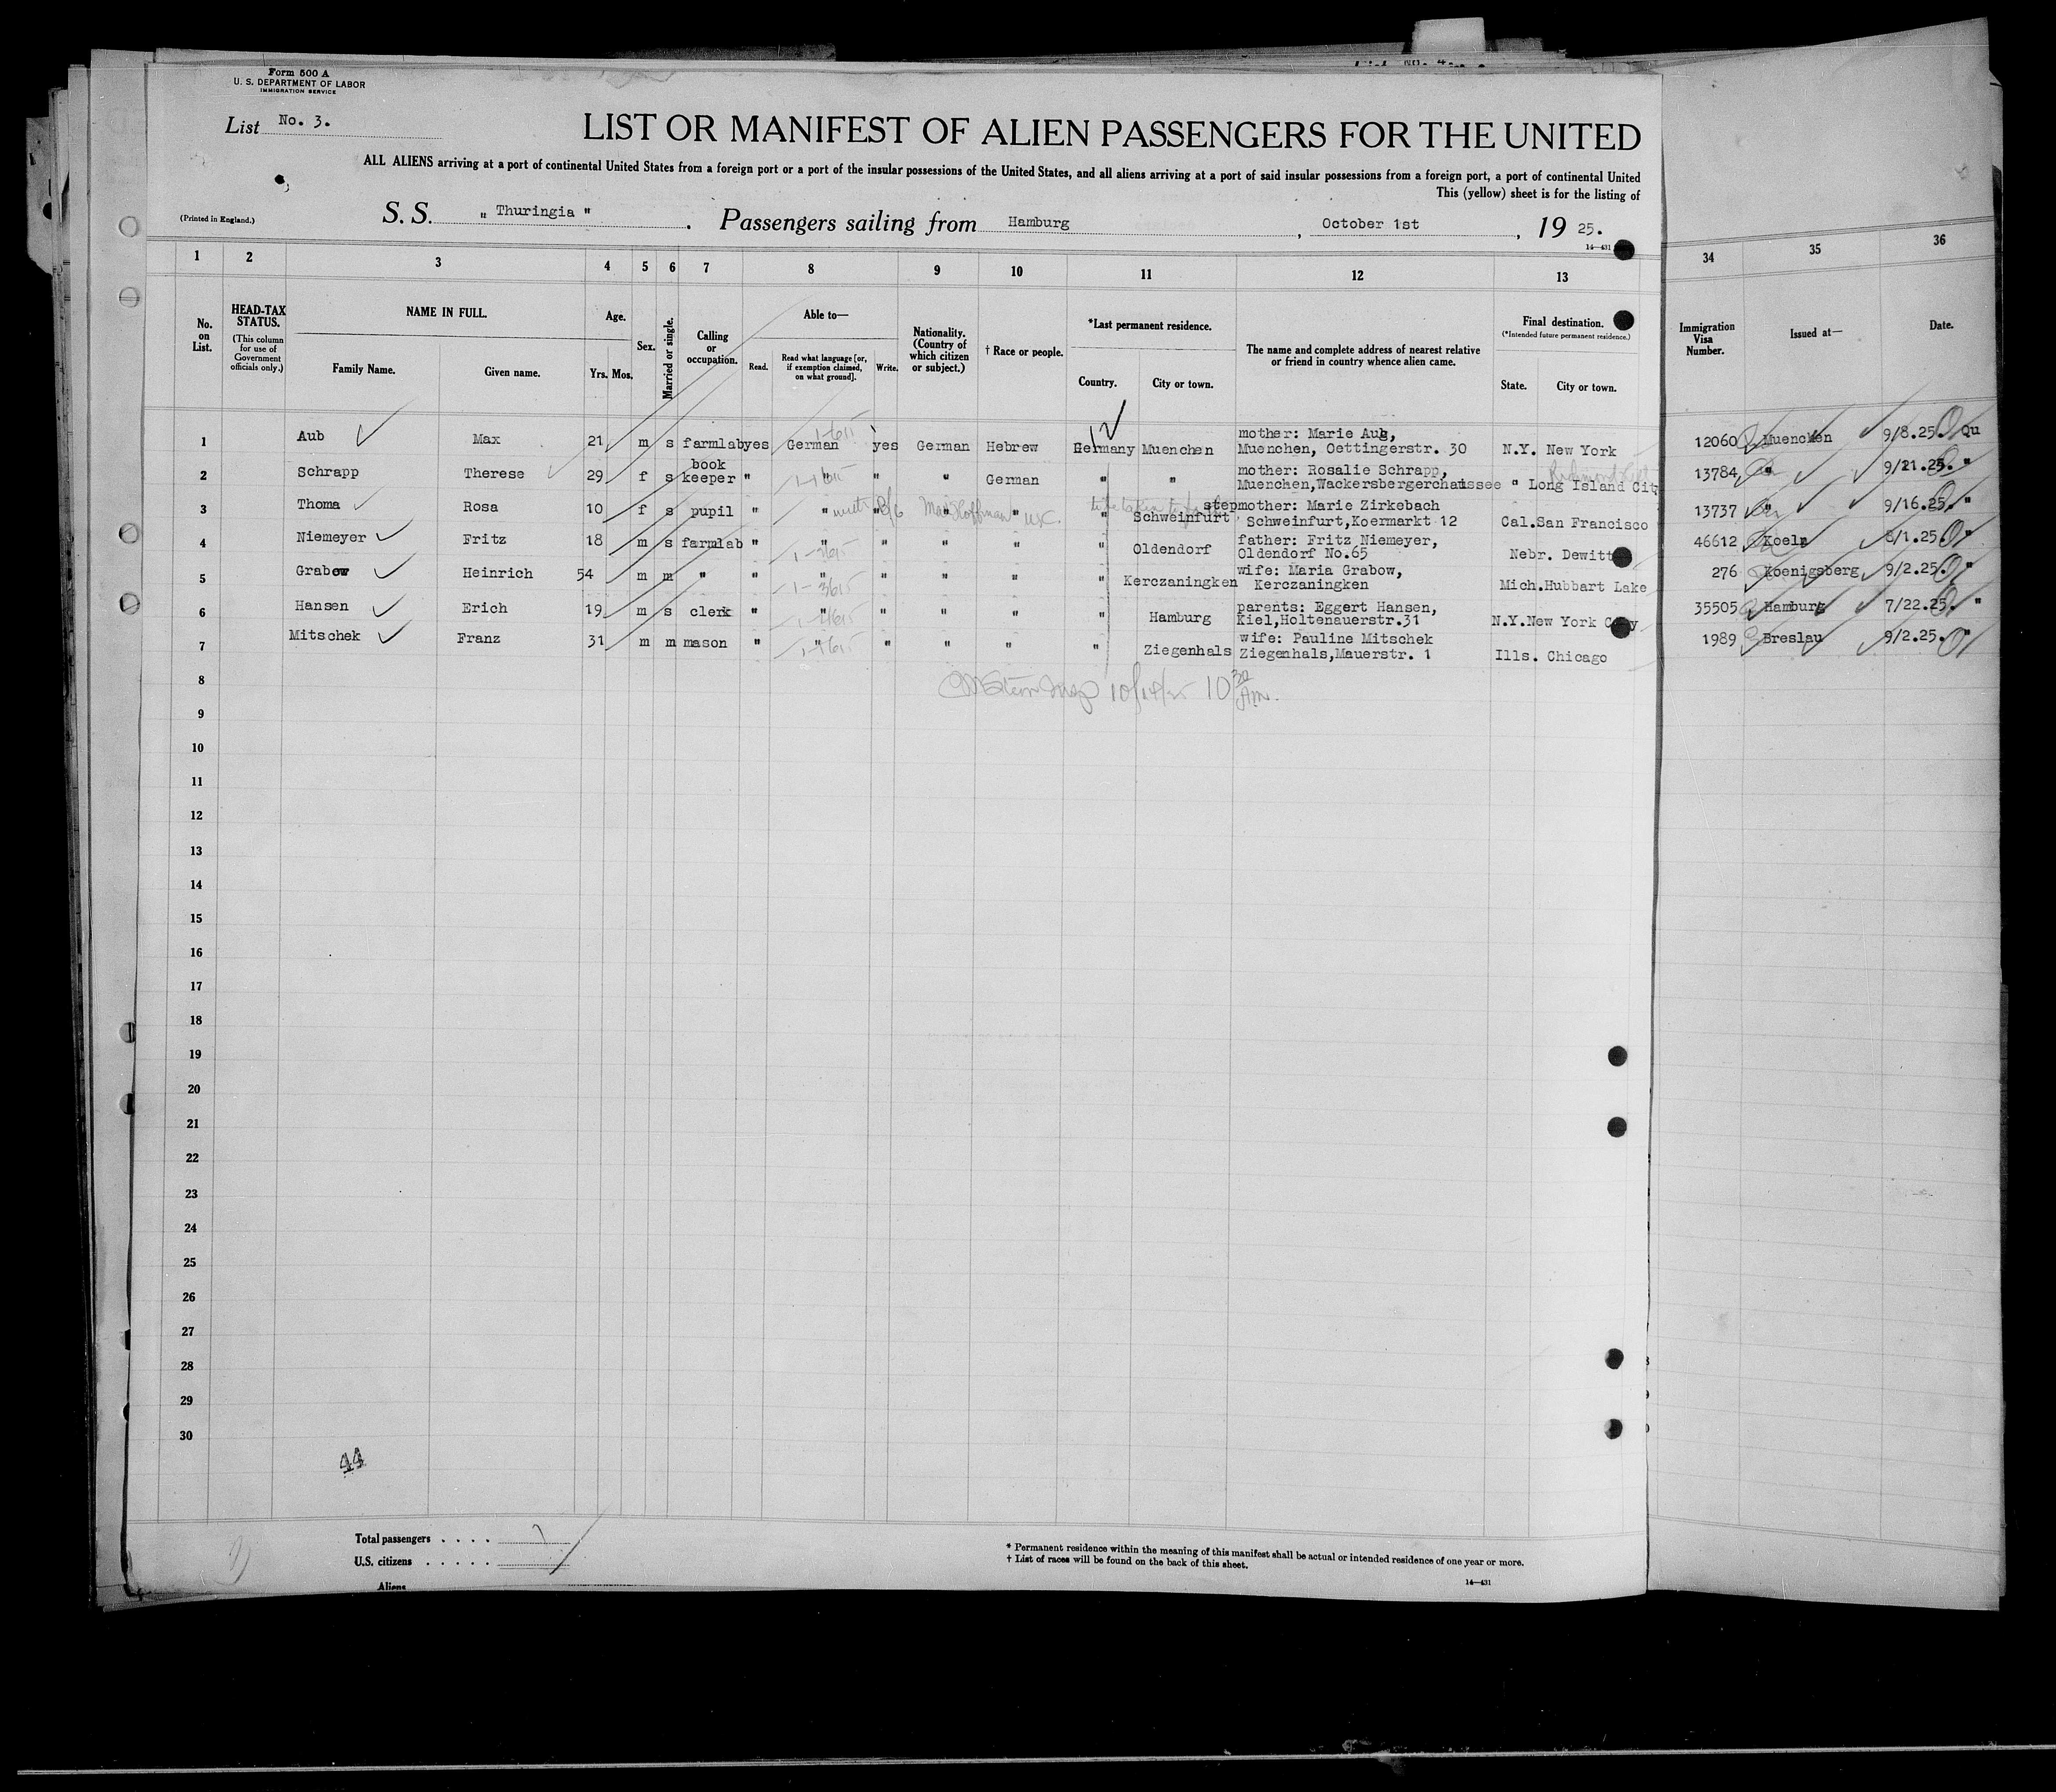 Form 500 A
U. S. DEPARTMENT OF LABOR
IMMIGRATION SERVICE
List No. 3.
LIST OR MANIFEST OF ALIEN PASSENGERS FOR THE UNITED
ALL ALIENS arriving at a port of continental United States from a foreign port or a port of the insular possessions of the United States, and all aliens arriving at a port of said insular possessions from a foreign port, a port of continental United
This (yellow) sheet is for the listing of
(Printed in England.)
S. S. „ Thuringia " . Passengers sailing from Hamburg , October 1st , 19 25.
14—431
1 2 3 4 5 6 7 8 9 10 11 12 13 34 35 36
No. on List.
HEAD-TAX STATUS. (This column for use of Government officials only.)
NAME IN FULL.
Family Name. Given name.
Age.
Yrs. Mos.
Sex.
Married or single.
Calling or occupation.
Able to—
Read. Read what language [or, if exemption claimed, on what ground]. Write.
Nationality. (Country of which citizen or subject.)
† Race or people.
*Last permanent residence.
Country. City or town.
The name and complete address of nearest relative or friend in country whence alien came.
Final destination.
(*Intended future permanent residence.)
State. City or town.
Immigration Visa Number.
Issued at—
Date.
1 Aub Max 21 m s farmlab yes German yes German Hebrew Germany Muenchen mother: Marie Aub, Muenchen, Oettingerstr. 30 N.Y. New York 12060 Muenchen 9/8.25. Qu
2 Schrapp Therese 29 f s book keeper " " " " German " " mother: Rosalie Schrapp, Muenchen,Wackersbergerchaussee " Long Island City 13784 " 9/21.25. "
3 Thoma Rosa 10 f s pupil " " " " " " Schweinfurt stepmother: Marie Zirkebach Schweinfurt,Koermarkt 12 Cal. San Francisco 13737 " 9/16.25. "
4 Niemeyer Fritz 18 m s farmlab " " " " " " Oldendorf father: Fritz Niemeyer, Oldendorf No.65 Nebr. Dewitt 46612 Koeln 8/1.25. "
5 Grabow Heinrich 54 m m " " " " " " " Kerczaningken wife: Maria Grabow, Kerczaningken Mich. Hubbart Lake 276 Koenigsberg 9/2.25. "
6 Hansen Erich 19 m s clerk " " " " " " Hamburg parents: Eggert Hansen, Kiel,Holtenauerstr.31 N.Y. New York City 35505 Hamburg 7/22.25. "
7 Mitschek Franz 31 m m mason " " " " " " Ziegenhals wife: Pauline Mitschek Ziegenhals,Mauerstr. 1 Ills. Chicago 1989 Breslau 9/2.25. "
8
9
10
11
12
13
14
15
16
17
18
19
20
21
22
23
24
25
26
27
28
29
30
44
Total passengers . . . . 7
U.S. citizens . . . . .
Aliens
* Permanent residence within the meaning of this manifest shall be actual or intended residence of one year or more.
† List of races will be found on the back of this sheet.
14—431